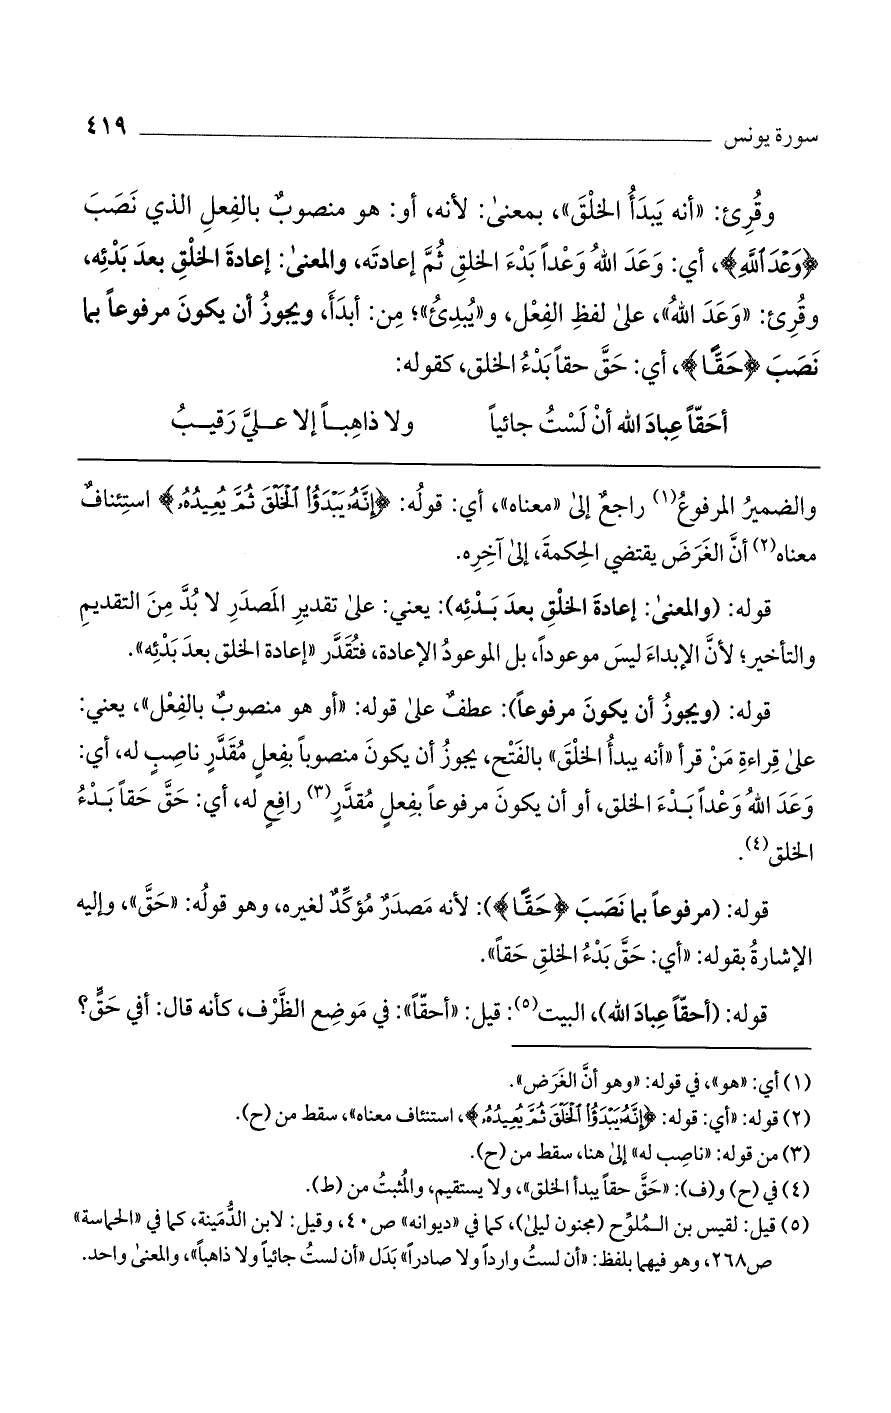 سورة يونس ٤١٩
وقُرِئ: «أنه يَبدَأُ الخلْقَ»، بمعنىٰ: لأنه، أو: هو منصوبٌ بالفِعلِ الذي نَصَبَ
﴿وَعْدَ ٱللَّهِ﴾، أي: وَعَدَ اللهُ وَعْداً بَدْءَ الخلقِ ثُمَّ إعادتَه، والمعنىٰ: إعادةَ الخلْقِ بعدَ بَدْئِه،
وقُرِئ: «وَعَدَ اللهُ»، علىٰ لفظِ الفِعْل، و«يُبدِئُ»؛ مِن: أبدَأَ، ويجوزُ أن يكونَ مرفوعاً بما
نَصَبَ ﴿حَقًّا﴾، أي: حَقَّ حقاً بَدْءُ الخلق، كقوله:
أحَقّاً عِبادَ الله أنْ لَسْتُ جائياً ولا ذاهِبـاً إلا علـيَّ رَقيـبُ
والضميرُ المرفوعُ(١) راجعٌ إلىٰ «معناه»، أي: قولُه: ﴿إِنَّهُۥ يَبْدَؤُا۟ ٱلْخَلْقَ ثُمَّ يُعِيدُهُۥ﴾ استِئنافٌ
معناه(٢) أنَّ الغَرَضَ يقتضي الحِكمةَ، إلىٰ آخِرِه.
قوله: (والمعنىٰ: إعادةَ الخلْقِ بعدَ بَـدْئِه): يعني: علىٰ تقديرِ المَصدَرِ لا بُدَّ مِنَ التقديمِ
والتأخير؛ لأنَّ الإبداءَ ليسَ موعوداً، بل الموعودُ الإعادة، فتُقَدَّر «إعادة الخلق بعدَ بَدْئِه».
قوله: (ويجوزُ أن يكونَ مرفوعاً): عطفٌ علىٰ قوله: «أو هو منصوبٌ بالفِعْل»، يعني:
علىٰ قِراءةِ مَنْ قرأ «أنه يبدأُ الخلْقَ» بالفَتْح، يجوزُ أن يكونَ منصوباً بفِعلٍ مُقَدَّرٍ ناصِبٍ له، أي:
وَعَدَ اللهُ وَعْداً بَـدْءَ الخلق، أو أن يكونَ مرفوعاً بفِعلٍ مُقدَّرٍ(٣) رافِعٍ له، أي: حَقَّ حَقاً بَـدْءُ
الخلق(٤).
قوله: (مرفوعاً بما نَصَبَ ﴿حَقًّا﴾): لأنه مَصدَرٌ مُؤكِّدٌ لغيره، وهو قولُه: «حَقَّ»، وإليه
الإشارةُ بقوله: «أي: حَقَّ بَدْءُ الخلقِ حَقاً».
قوله: (أحقّاً عِبادَ الله)، البيت(٥): قيل: «أحقّاً»: في مَوضِعِ الظَّرْف، كأنه قال: أفي حَقٍّ؟
(١) أي: «هو»، في قوله: «وهو أنَّ الغَرَض».
(٢) قوله: «أي: قوله: ﴿إِنَّهُۥ يَبْدَؤُا۟ ٱلْخَلْقَ ثُمَّ يُعِيدُهُۥ﴾، استئناف معناه»، سقط من (ح).
(٣) من قوله: «ناصِب له» إلىٰ هنا، سقط من (ح).
(٤) في (ح) و(ف): «حَقَّ حقاً يبدأ الخلق»، ولا يستقيم، والمُثبتُ من (ط).
(٥) قيل: لقيس بن المُلوِّح (مجنون ليلىٰ)، كما في «ديوانه» ص٤٠، وقيل: لابن الدُّمَينة، كما في «الحماسة»
ص٢٦٨، وهو فيهما بلفظ: «أن لستُ وارداً ولا صادراً» بَدَل «أن لستُ جائياً ولا ذاهباً»، والمعنىٰ واحد.